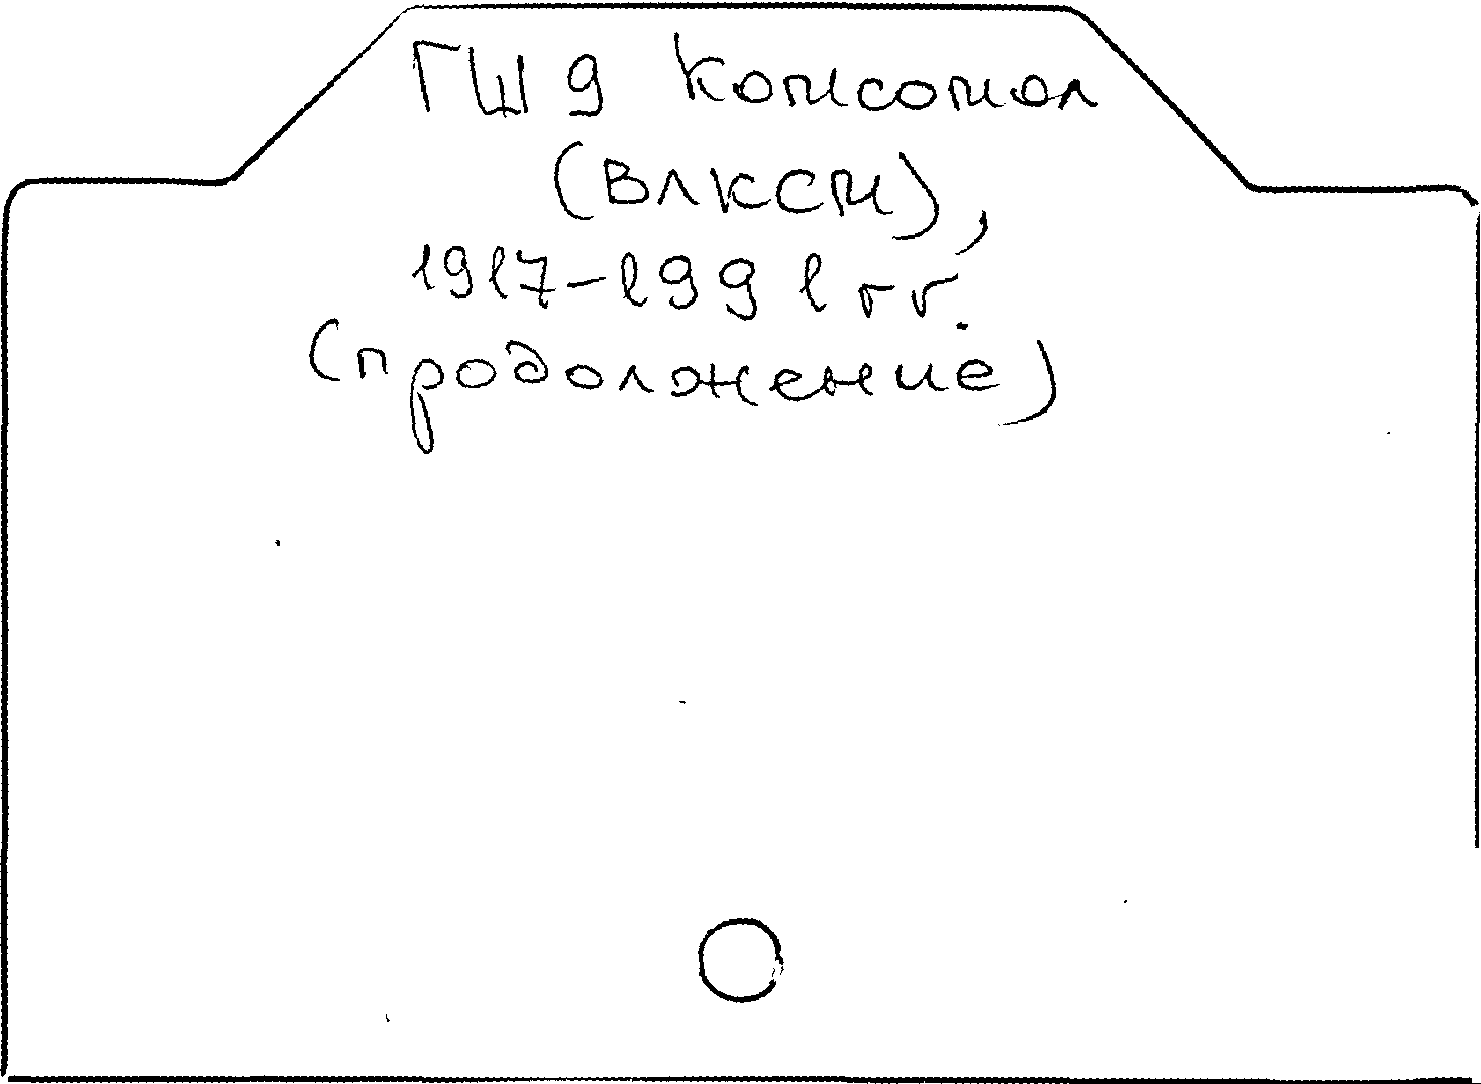 ГШ 9 Комсомол
(ВЛКСМ),
1917-1991 гг.
(продолжение)